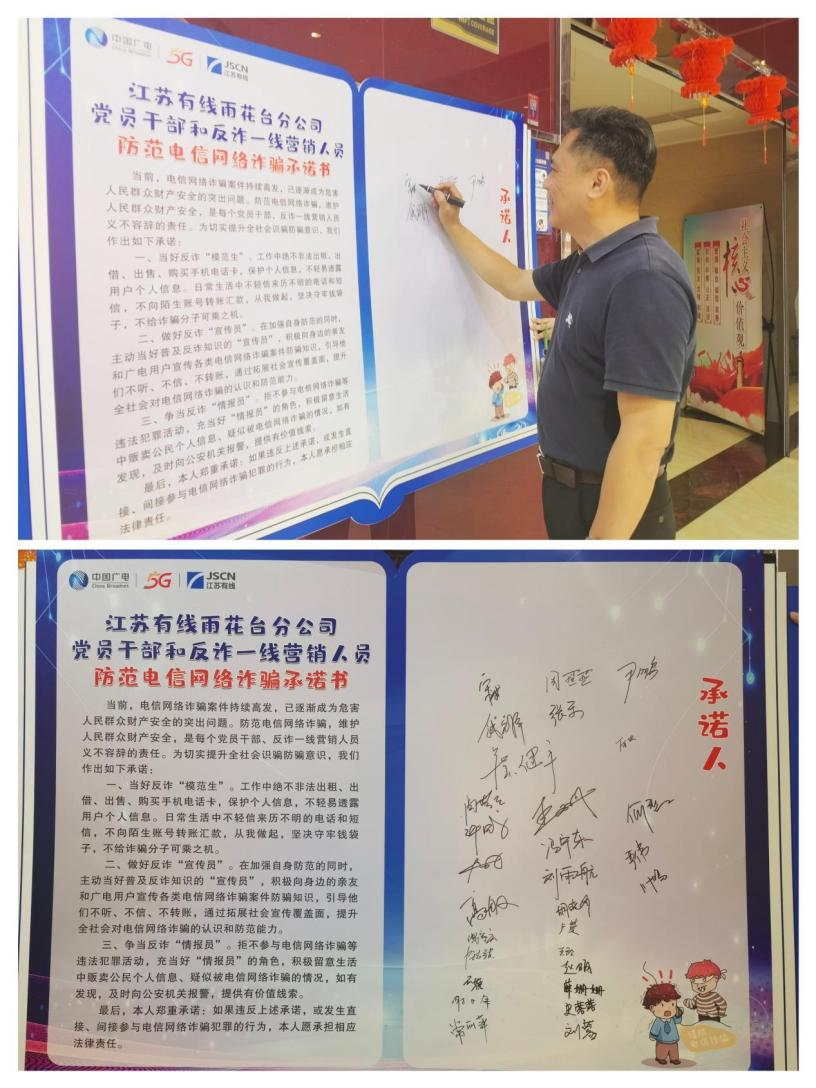 中国广电
China Broadnet
5G
JSCN
江苏有线
江苏有线雨花台分公司
党员干部和反诈一线营销人员
防范电信网络诈骗承诺书
当前，电信网络诈骗案件持续高发，已逐渐成为危害
人民群众财产安全的突出问题。防范电信网络诈骗，维护
人民群众财产安全，是每个党员干部、反诈一线营销人员
义不容辞的责任。为切实提升全社会识骗防骗意识，我们
作出如下承诺：
一、当好反诈“模范生”。工作中绝不非法出租、出
借、出售、购买手机电话卡，保护个人信息，不轻易透露
用户个人信息。日常生活中不轻信来历不明的电话和短
信，不向陌生账号转账汇款，从我做起，坚决守牢钱袋
子，不给诈骗分子可乘之机。
二、做好反诈“宣传员”。在加强自身防范的同时，
主动当好普及反诈知识的“宣传员”，积极向身边的亲友
和广电用户宣传各类电信网络诈骗案件防骗知识，引导他
们不听、不信、不转账，通过拓展社会宣传覆盖面，提升
全社会对电信网络诈骗的认识和防范能力。
三、争当反诈“情报员”。拒不参与电信网络诈骗等
违法犯罪活动，充当好“情报员”的角色，积极留意生活
中贩卖公民个人信息、疑似被电信网络诈骗的情况，如有
发现，及时向公安机关报警，提供有价值线索。
最后，本人郑重承诺：如果违反上述承诺，或发生直
接、间接参与电信网络诈骗犯罪的行为，本人愿承担相应
法律责任。
承诺人
社会主义
核心
价值观
中国广电
China Broadnet
5G
JSCN
江苏有线
江苏有线雨花台分公司
党员干部和反诈一线营销人员
防范电信网络诈骗承诺书
当前，电信网络诈骗案件持续高发，已逐渐成为危害
人民群众财产安全的突出问题。防范电信网络诈骗，维护
人民群众财产安全，是每个党员干部、反诈一线营销人员
义不容辞的责任。为切实提升全社会识骗防骗意识，我们
作出如下承诺：
一、当好反诈“模范生”。工作中绝不非法出租、出
借、出售、购买手机电话卡，保护个人信息，不轻易透露
用户个人信息。日常生活中不轻信来历不明的电话和短
信，不向陌生账号转账汇款，从我做起，坚决守牢钱袋
子，不给诈骗分子可乘之机。
二、做好反诈“宣传员”。在加强自身防范的同时，
主动当好普及反诈知识的“宣传员”，积极向身边的亲友
和广电用户宣传各类电信网络诈骗案件防骗知识，引导他
们不听、不信、不转账，通过拓展社会宣传覆盖面，提升
全社会对电信网络诈骗的认识和防范能力。
三、争当反诈“情报员”。拒不参与电信网络诈骗等
违法犯罪活动，充当好“情报员”的角色，积极留意生活
中贩卖公民个人信息、疑似被电信网络诈骗的情况，如有
发现，及时向公安机关报警，提供有价值线索。
最后，本人郑重承诺：如果违反上述承诺，或发生直
接、间接参与电信网络诈骗犯罪的行为，本人愿承担相应
法律责任。
承诺人
尹鹏
冯宁东
刘雨航
赵明
薛姗姗
史蓉蓉
刘莺